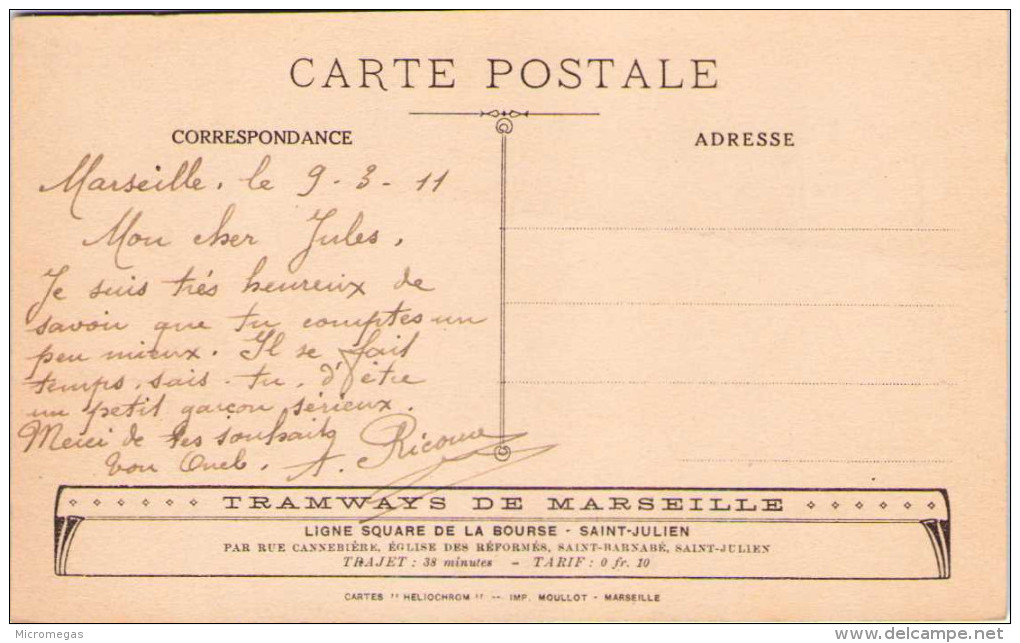 CARTE POSTALE
CORRESPONDANCE
ADRESSE
Marseille, le 9-3-11
Mon cher Jules,
Je suis trés heureux de
savoir que tu comptes un
peu mieux. Il se fait
temps, sais-tu, d'être
un petit garçon sérieux.
Merci de tes souhaits
ton Oncle, A. Ricoux
TRAMWAYS DE MARSEILLE
LIGNE SQUARE DE LA BOURSE - SAINT-JULIEN
PAR RUE CANNEBIÈRE, ÉGLISE DES RÉFORMÉS, SAINT-BARNABÉ, SAINT-JULIEN
TRAJET : 38 minutes - TARIF : 0 fr. 10
CARTES "HELIOCHROM" -- IMP. MOULLOT - MARSEILLE
Micromegas
delcampe.net